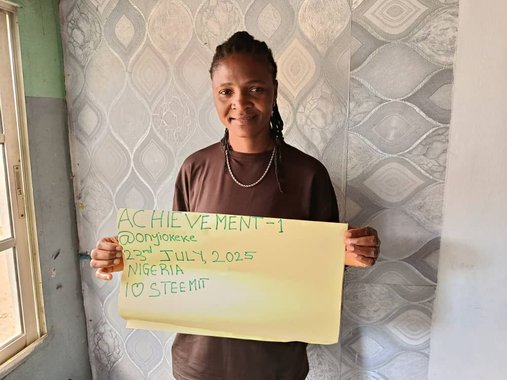 ACHIEVEMENT-1
@onyiokeke
23rd JULY, 2025
NIGERIA
I ♡ STEEMIT